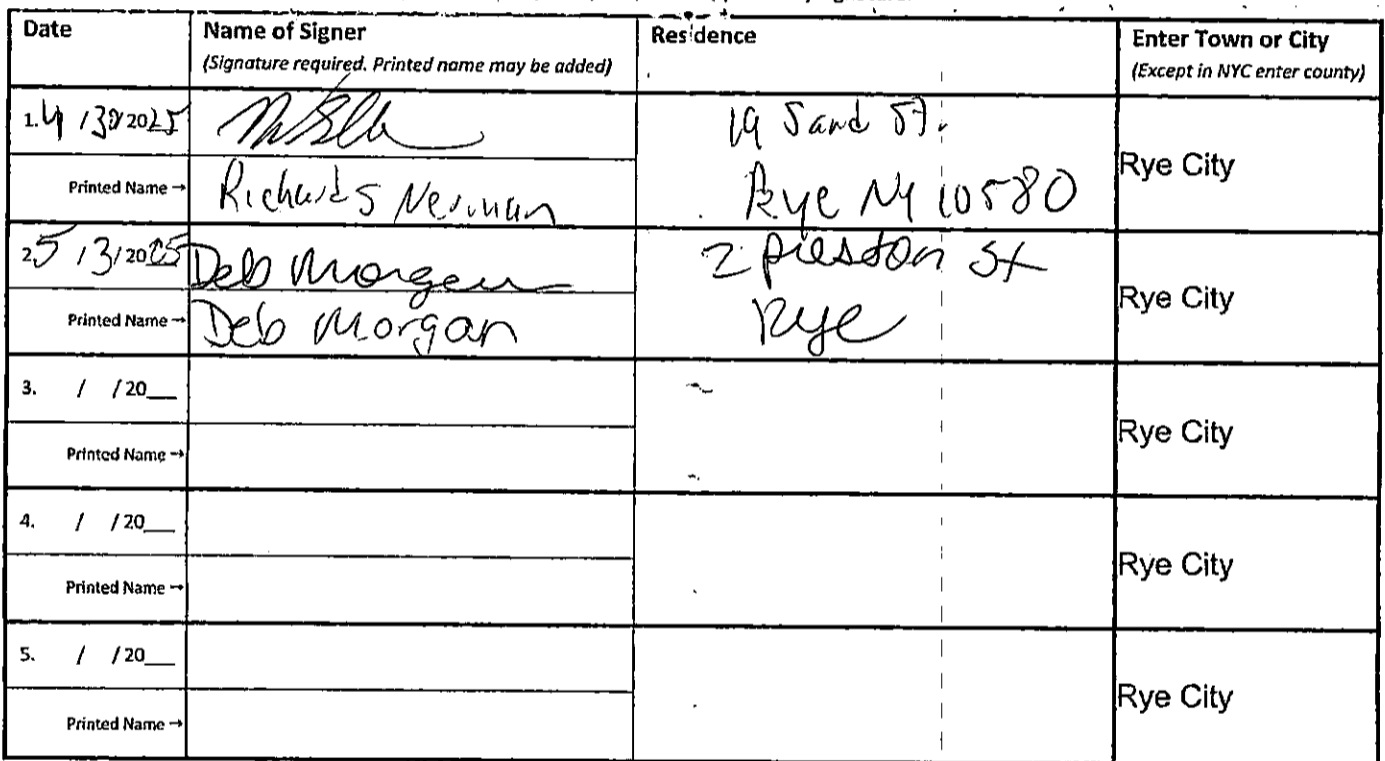 Date
Name of Signer
(Signature required. Printed name may be added)
Residence
Enter Town or City
(Except in NYC enter county)
1. 4/30/2025
19 Sand St.
Rye NY 10580
Rye City
Printed Name →
Richard S
2. 5/3/2025
Deb Morgan
2 Preston St
Rye
Rye City
Printed Name →
Deb Morgan
3. / /20__
Rye City
Printed Name →
4. / /20__
Rye City
Printed Name →
5. / /20__
Rye City
Printed Name →